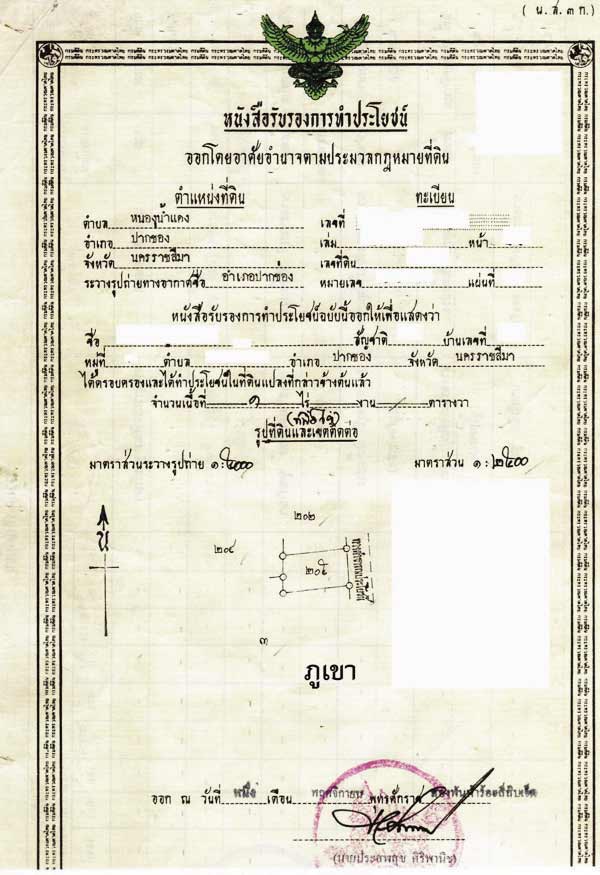 ( น.ส.๓ ก.)
หนังสือรับรองการทำประโยชน์
ออกโดยอาศัยอำนาจตามประมวลกฎหมายที่ดิน
ตำแหน่งที่ดิน
ทะเบียน
ตำบล หนองน้ำแดง เลขที่
อำเภอ ปากช่อง เล่ม หน้า
จังหวัด นครราชสีมา เลขที่ดิน
ระวางรูปถ่ายทางอากาศชื่อ อำเภอปากช่อง หมายเลข แผ่นที่
หนังสือรับรองการทำประโยชน์ฉบับนี้ออกให้เพื่อแสดงว่า
ชื่อ สัญชาติ บ้านเลขที่
หมู่ที่ ตำบล อำเภอ ปากช่อง จังหวัด นครราชสีมา
ได้ครอบครองและได้ทำประโยชน์ในที่ดินแปลงที่กล่าวข้างต้นแล้ว
จำนวนเนื้อที่ ๑ ไร่ งาน ตารางวา
(หนึ่งไร่)
รูปที่ดินและเขตติดต่อ
มาตราส่วนระวางรูปถ่าย ๑:๕๐๐๐ มาตราส่วน ๑:๒๕๐๐
น
๒๐๒
๒๐๔
๒๐๕
๓
ภูเขา
ออก ณ วันที่ หนึ่ง เดือน พฤศจิกายน พุทธศักราช สองพันห้าร้อยสี่สิบเจ็ด